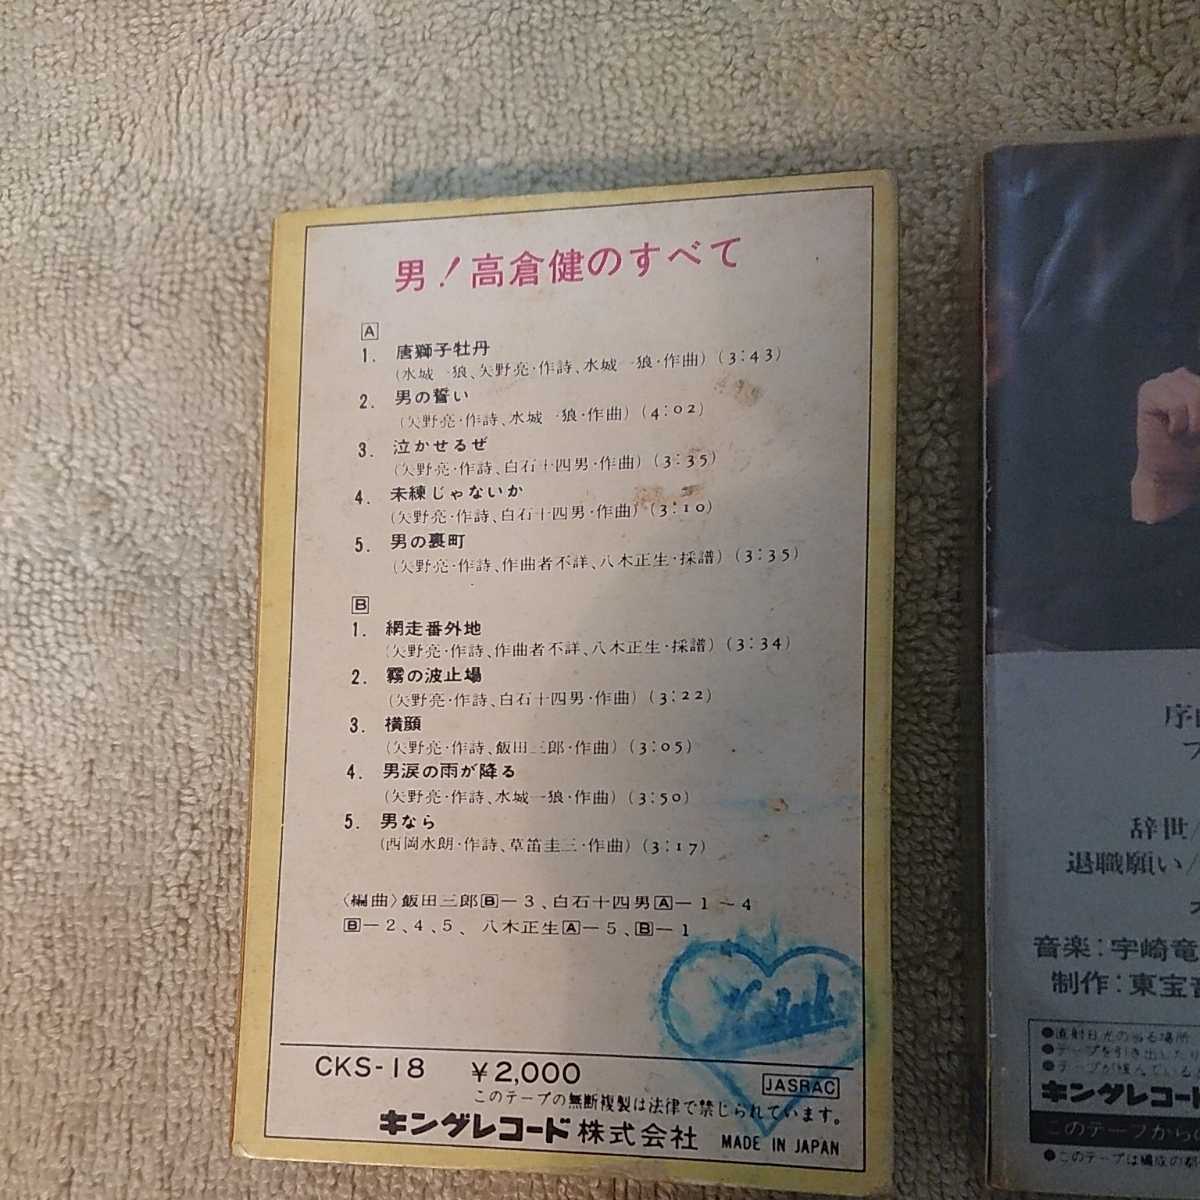 男！高倉健のすべて
A
1. 唐獅子牡丹
(水城一狼、矢野亮・作詩、水城一狼・作曲) (3:43)
2. 男の誓い
(矢野亮・作詩、水城一狼・作曲) (4:02)
3. 泣かせるぜ
(矢野亮・作詩、白石十四男・作曲) (3:35)
4. 未練じゃないか
(矢野亮・作詩、白石十四男・作曲) (3:10)
5. 男の裏町
(矢野亮・作詩、作曲者不詳、八木正生・採譜) (3:35)
B
1. 網走番外地
(矢野亮・作詩、作曲者不詳、八木正生・採譜) (3:34)
2. 霧の波止場
(矢野亮・作詩、白石十四男・作曲) (3:22)
3. 横顔
(矢野亮・作詩、飯田三郎・作曲) (3:05)
4. 男涙の雨が降る
(矢野亮・作詩、水城一狼・作曲) (3:50)
5. 男なら
(西岡水朗・作詩、草笛圭三・作曲) (3:17)
〈編曲〉飯田三郎B－3、白石十四男A－1〜4
B－2、4、5、八木正生A－5、B－1
CKS-18 ¥2,000 JASRAC
このテープの無断複製は法律で禁じられています。
キングレコード株式会社 MADE IN JAPAN
序曲
辞世/
退職願い/
音楽:宇崎竜
制作:東宝音
●直射日光の当る場所
●テープを引き出したり
●テープが緩んでいると
キングレコード
このテープからの
●このテープは編成の都